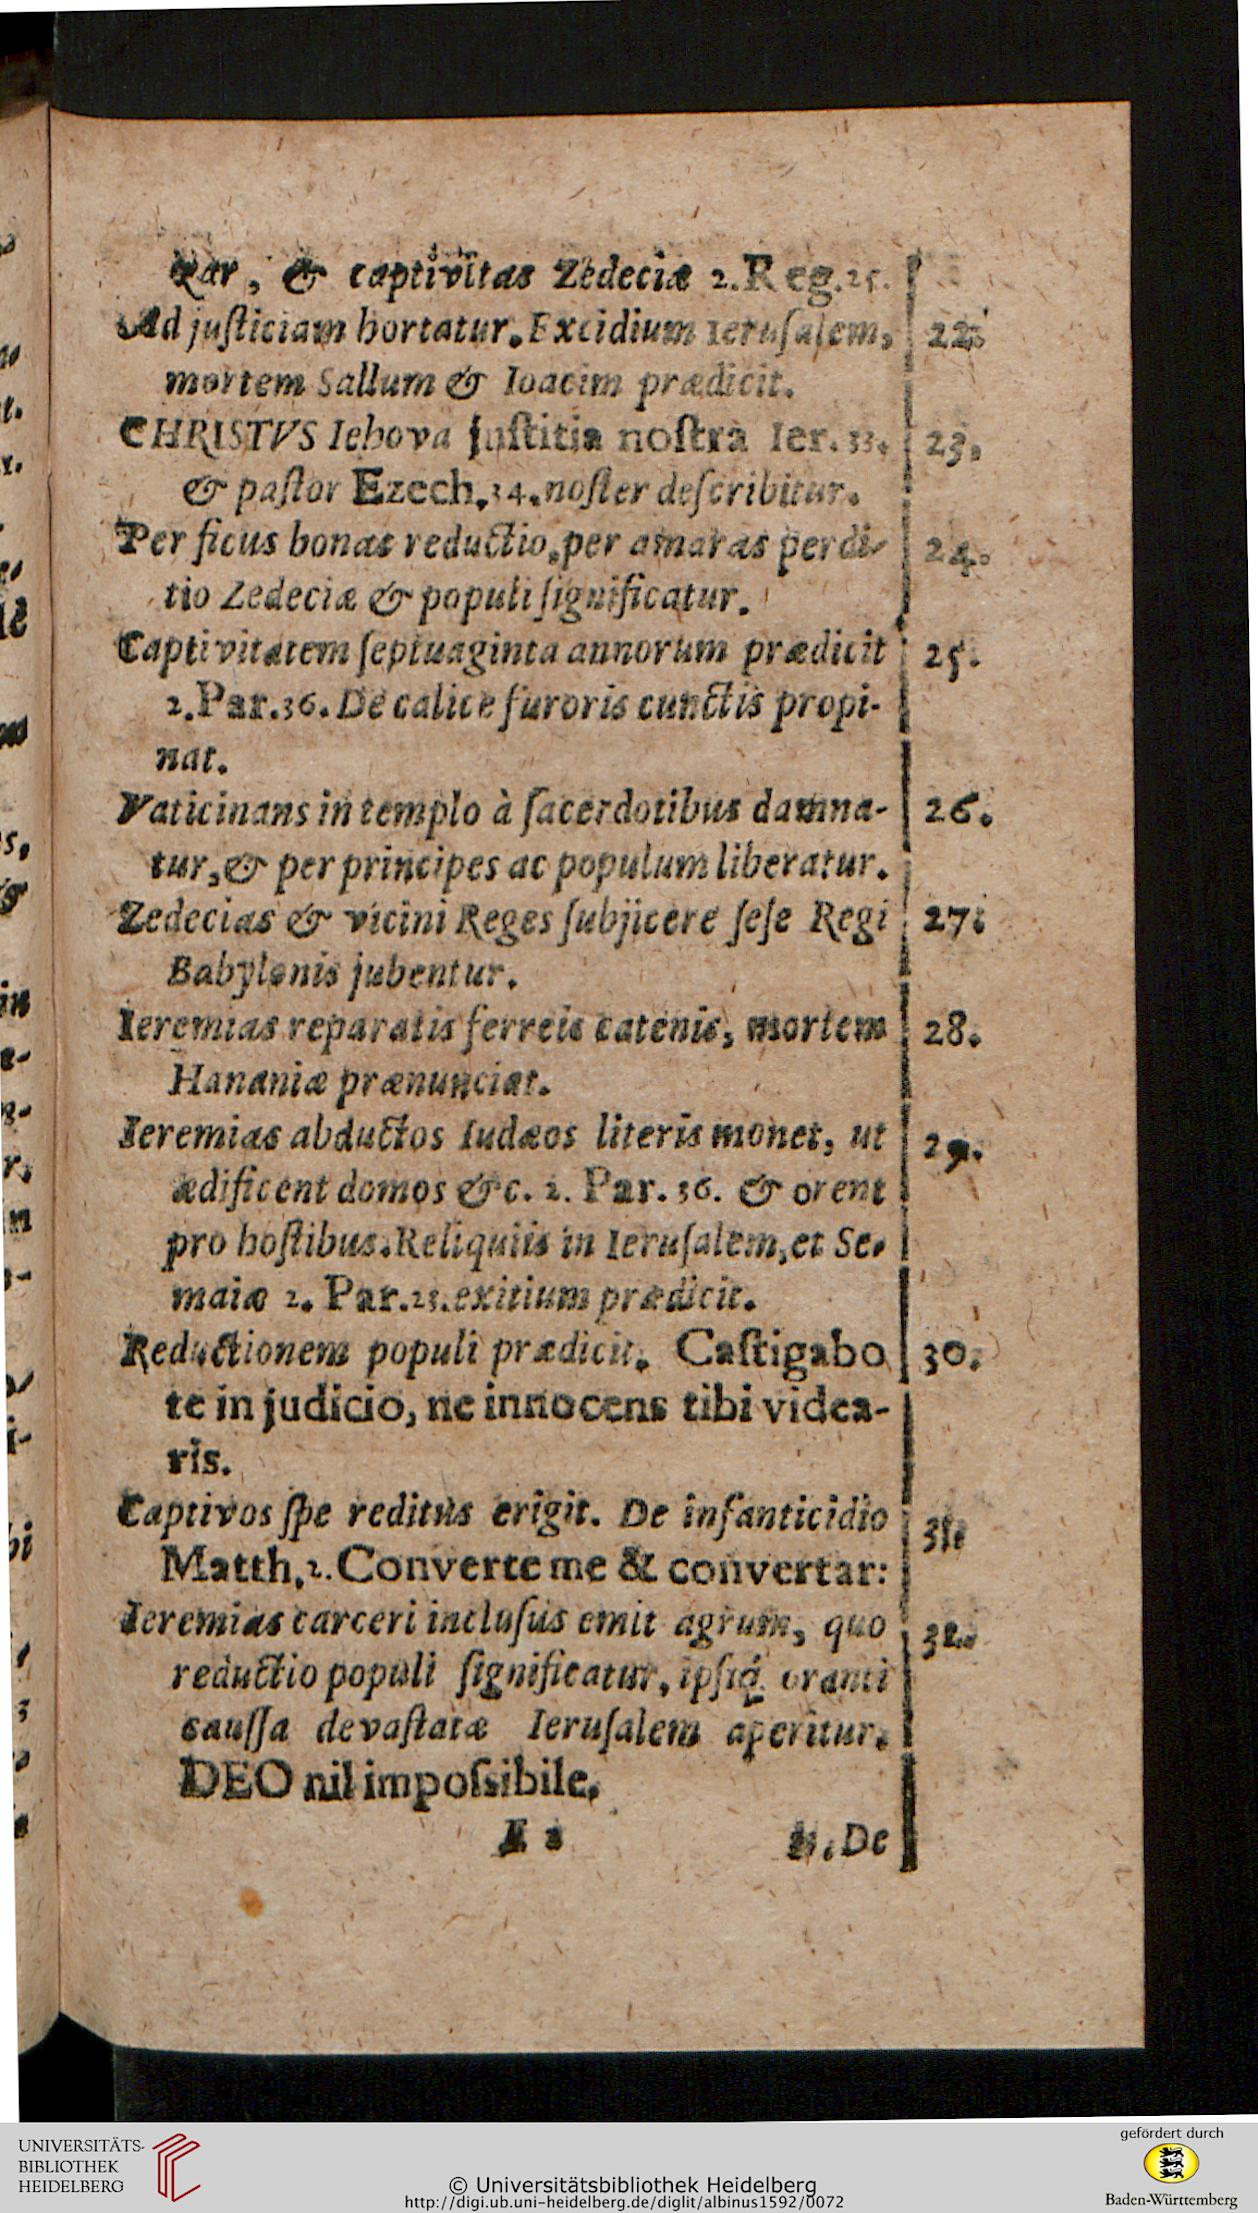 zar, & captivitas Zedeciæ 2. Reg. 25.
Ad justiciam hortatur. Excidium Ierusalem, 22.
mortem Sallum & Ioacim prædicit.
CHRISTVS Iehova justitia nostra Ier. 33. 23.
& pastor Ezech. 34. noster describitur.
Per ficus bonas reductio, per amaras perdi- 24.
tio Zedeciæ & populi significatur.
Captivitatem septuaginta annorum prædicit 25.
2. Par. 36. De calice furoris cunctis propi-
nat.
Vaticinans in templo à sacerdotibus damna- 26.
tur, & per principes ac populum liberatur.
Zedecias & vicini Reges subjicere sese Regi 27.
Babylonis jubentur.
Ieremias reparatis ferreis catenis, mortem 28.
Hananiæ prænunciat.
Ieremias abductos Iudæos literis monet, ut 29.
ædificent domos &c. 2. Par. 36. & orent
pro hostibus. Reliquiis in Ierusalem, et Se-
maiæ 2. Par. exitium prædicit.
Reductionem populi prædicit. Castigabo 30.
te in judicio, ne innocens tibi videa-
ris.
Captivos spe reditus erigit. De infanticidio 31.
Matth. 2. Converte me & convertar:
Ieremias carceri inclusus emit agrum, quo 32.
reductio populi significatur, ipsiq́; oranti
caussa devastatæ Ierusalem aperitur.
DEO nil impossibile.
E 2 De
UNIVERSITÄTS-
BIBLIOTHEK
HEIDELBERG
© Universitätsbibliothek Heidelberg
http://digi.ub.uni-heidelberg.de/diglit/albinus1592/0072
gefördert durch
Baden-Württemberg